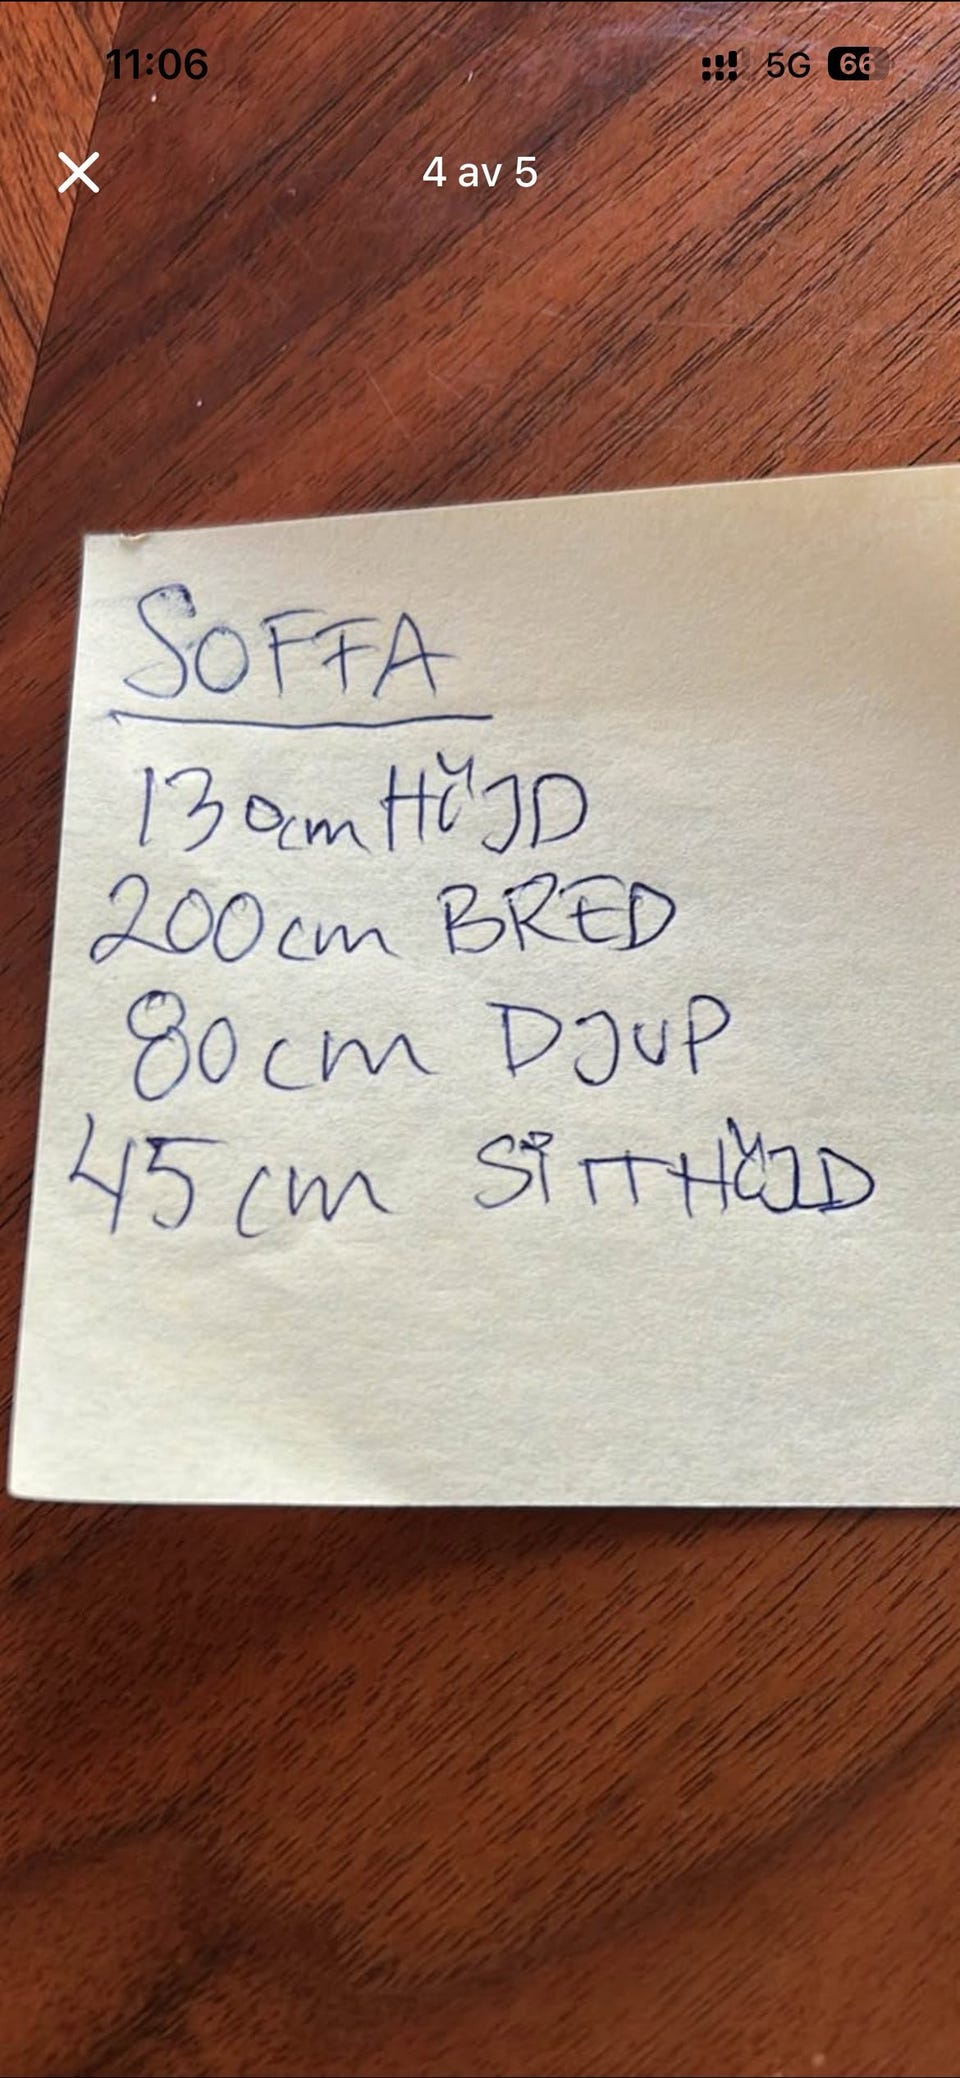 11:06
5G 66
4 av 5
SOFFA
130cm HÖJD
200cm BRED
80cm DJUP
45cm SITTHÖJD